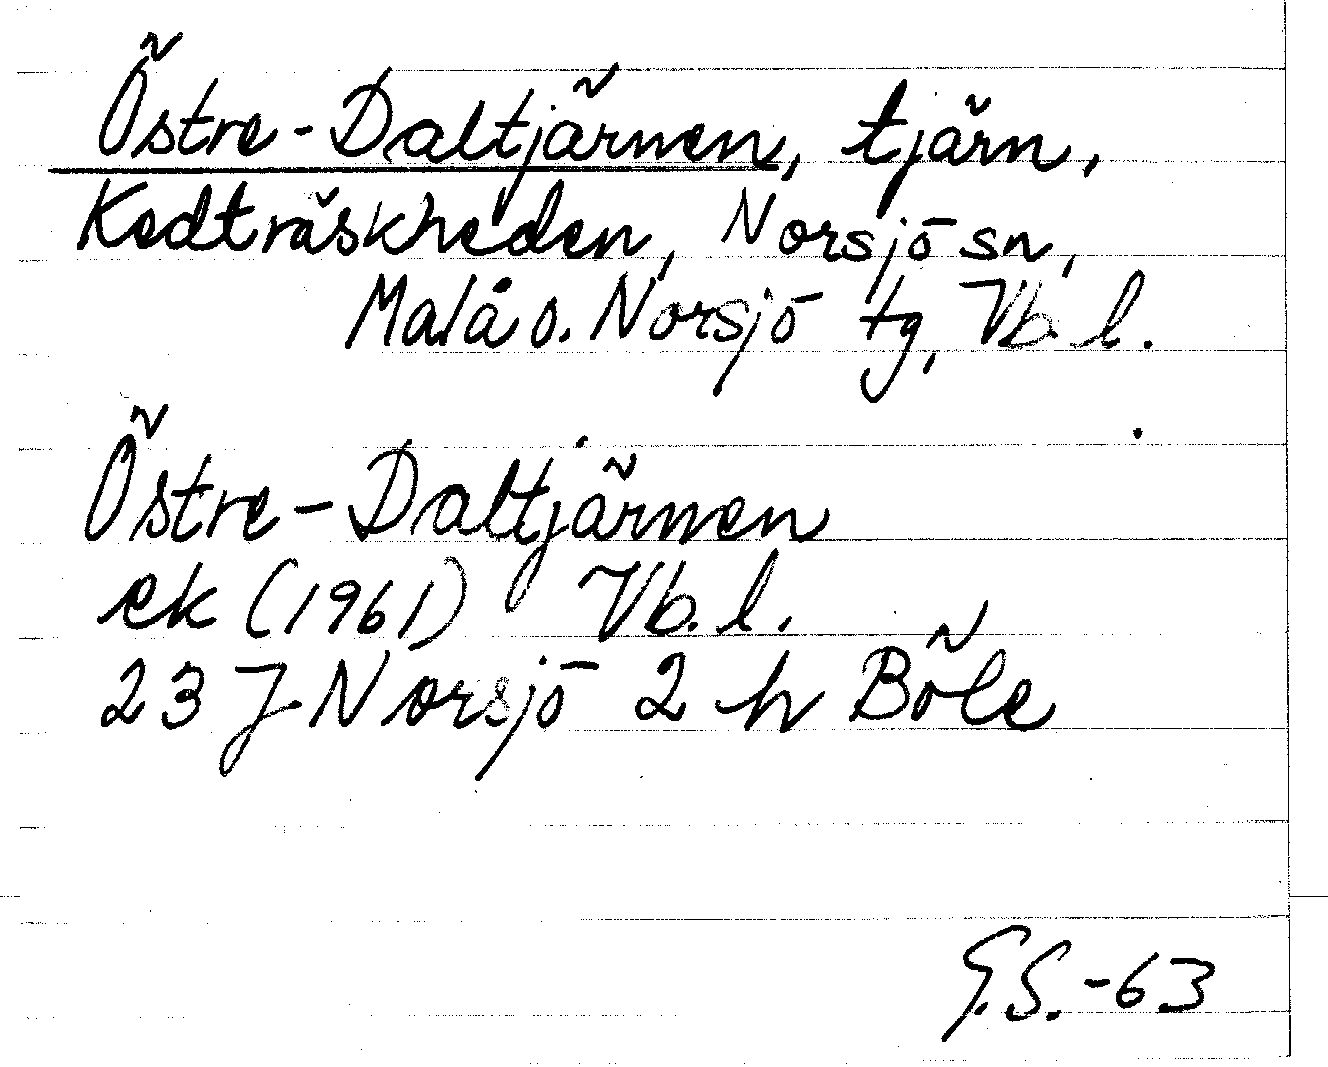 Östre-Daltjärnen, tjärn,
Kedträskheden, Norsjö sn,
Malå o. Norsjö tg, Vb. l.
Östre-Daltjärnen
ek (1961) Vb. l.
23 J Norsjö 2 h Böle
G.S.-63